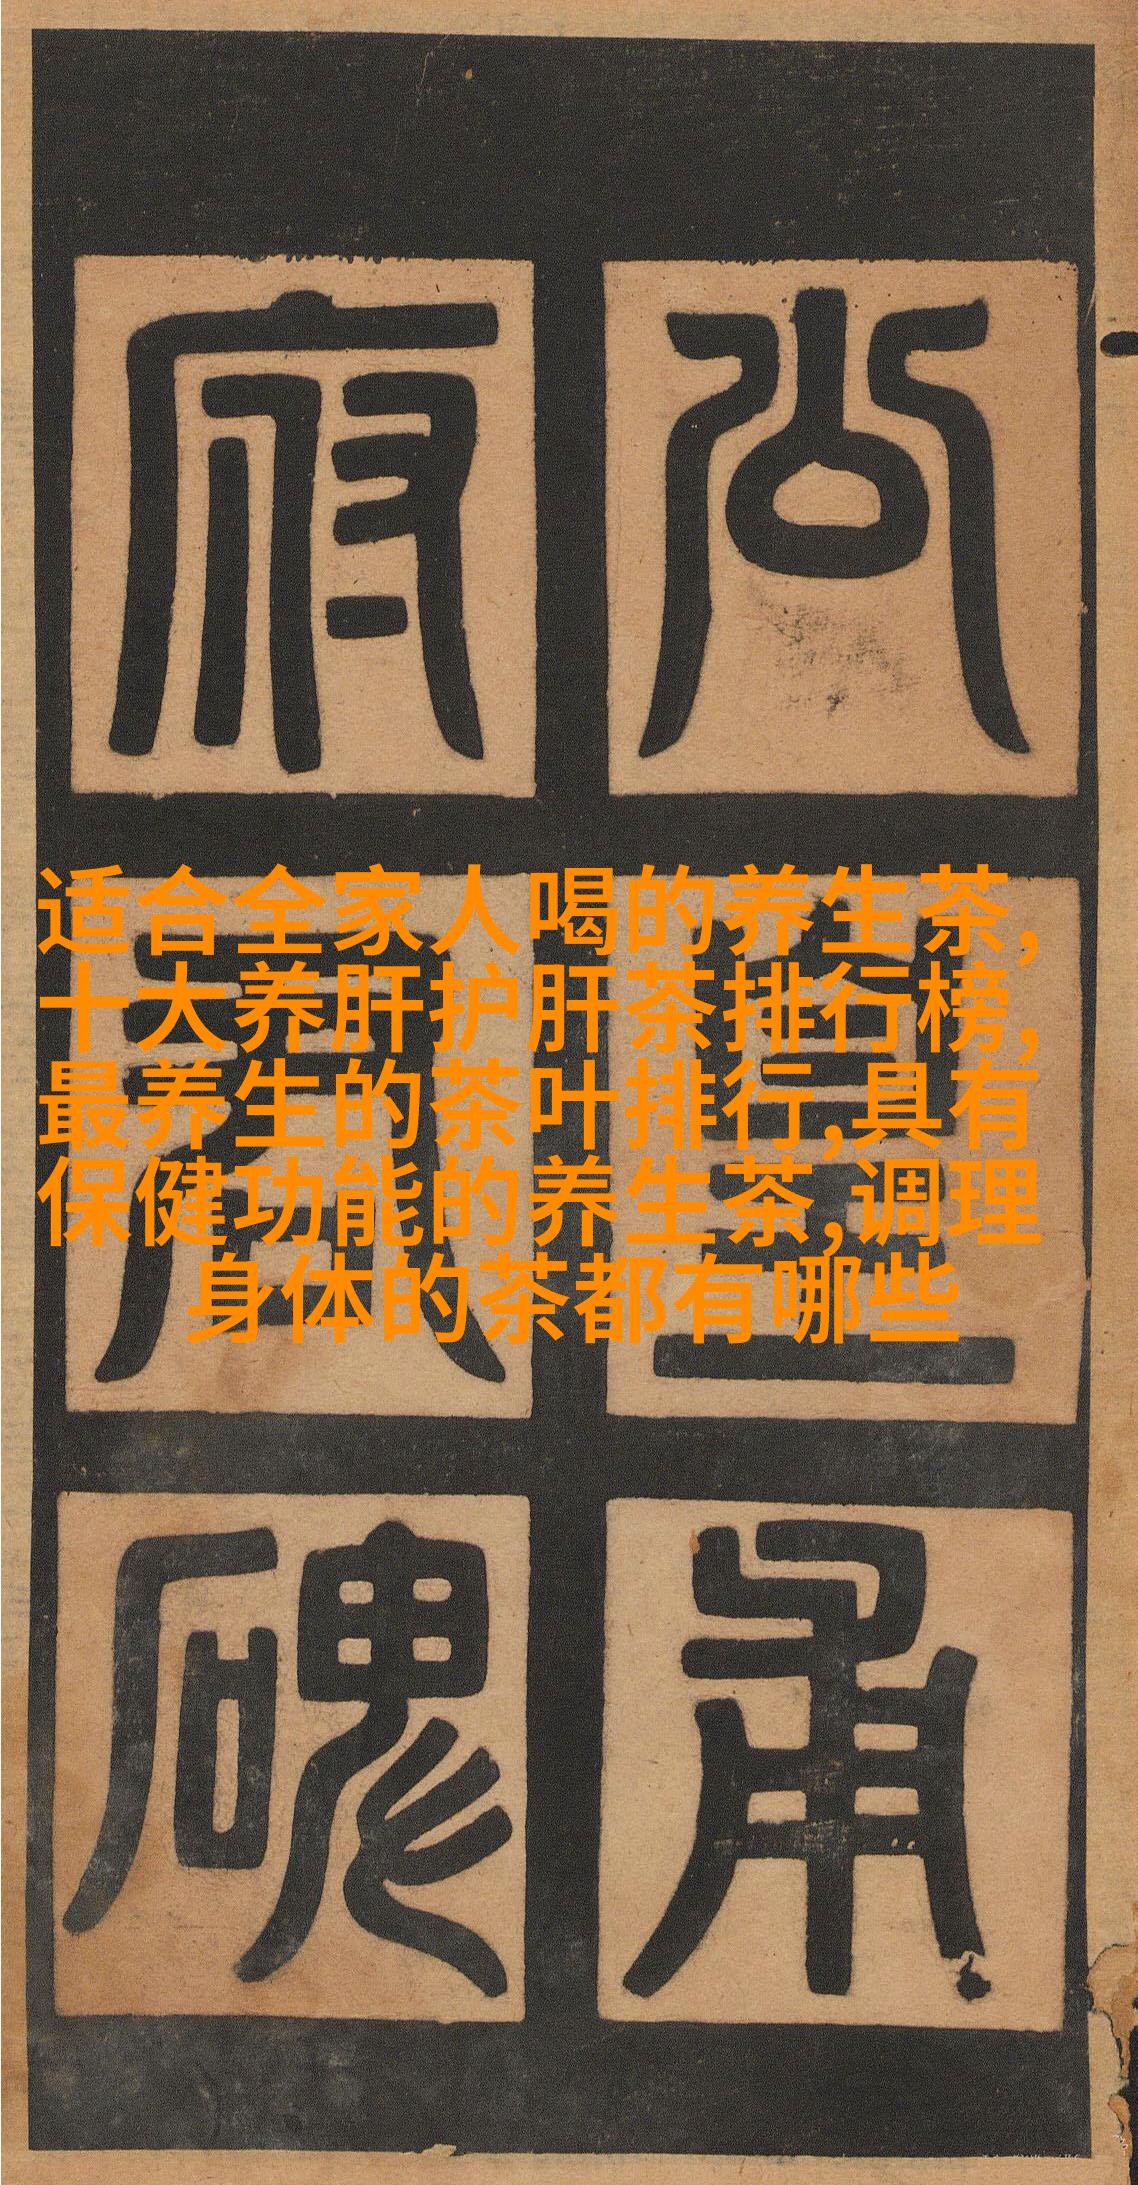 府君碑
适合全家人喝的养生茶,
十大养肝护肝茶排行榜,
最养生的茶叶排行,具有
保健功能的养生茶,调理
身体的茶都有哪些